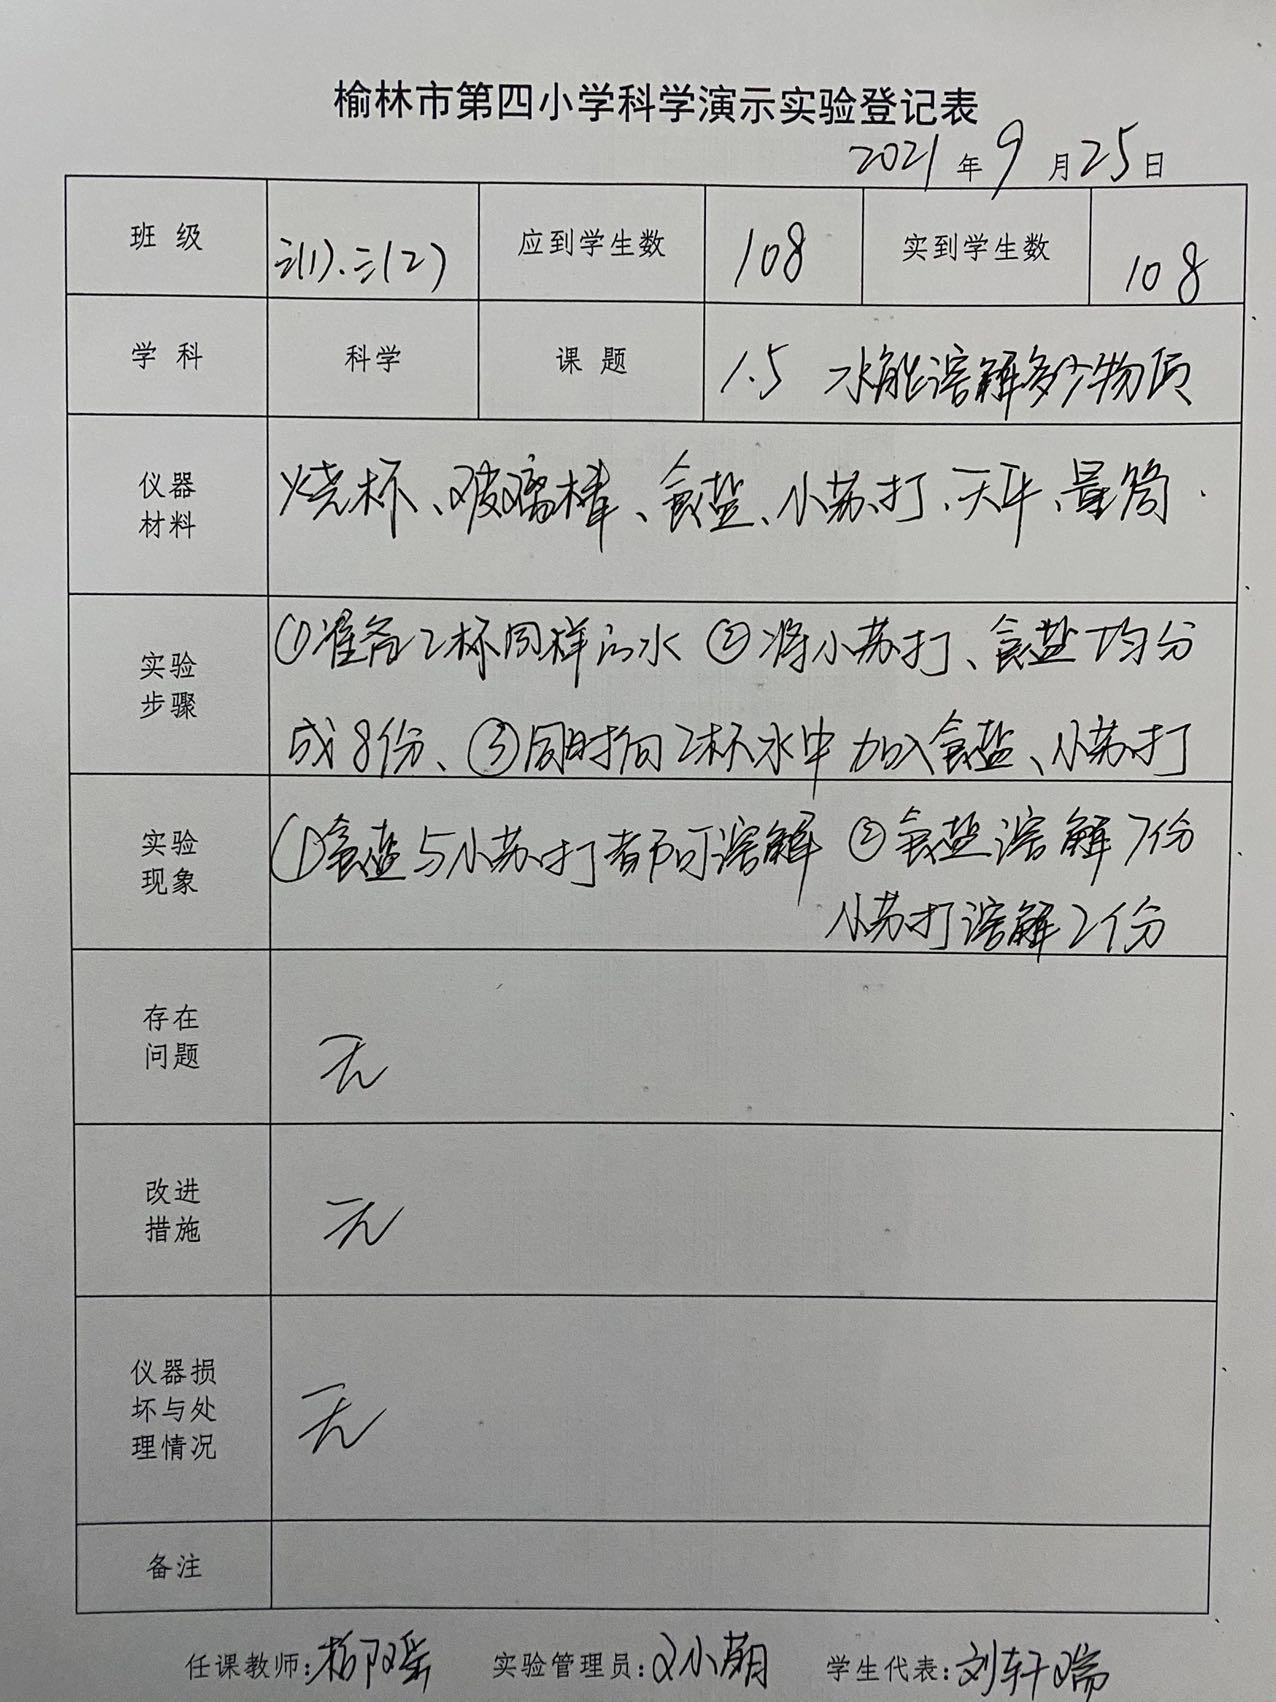 榆林市第四小学科学演示实验登记表
2021年9月25日
班 级 三(1)、三(2) 应到学生数 108 实到学生数 108
学 科 科学 课 题 1.5 水能溶解多少物质
仪器
材料
烧杯、玻璃棒、食盐、小苏打、天平、量筒.
实验
步骤
①准备2杯同样的水 ②将小苏打、食盐均分
成8份、③同时向2杯水中加入食盐、小苏打
实验
现象
①食盐与小苏打都可溶解 ②食盐溶解7份
小苏打溶解2份
存在
问题
无
改进
措施
无
仪器损
坏与处
理情况
无
备注
任课教师: 实验管理员: 学生代表:刘轩瑞